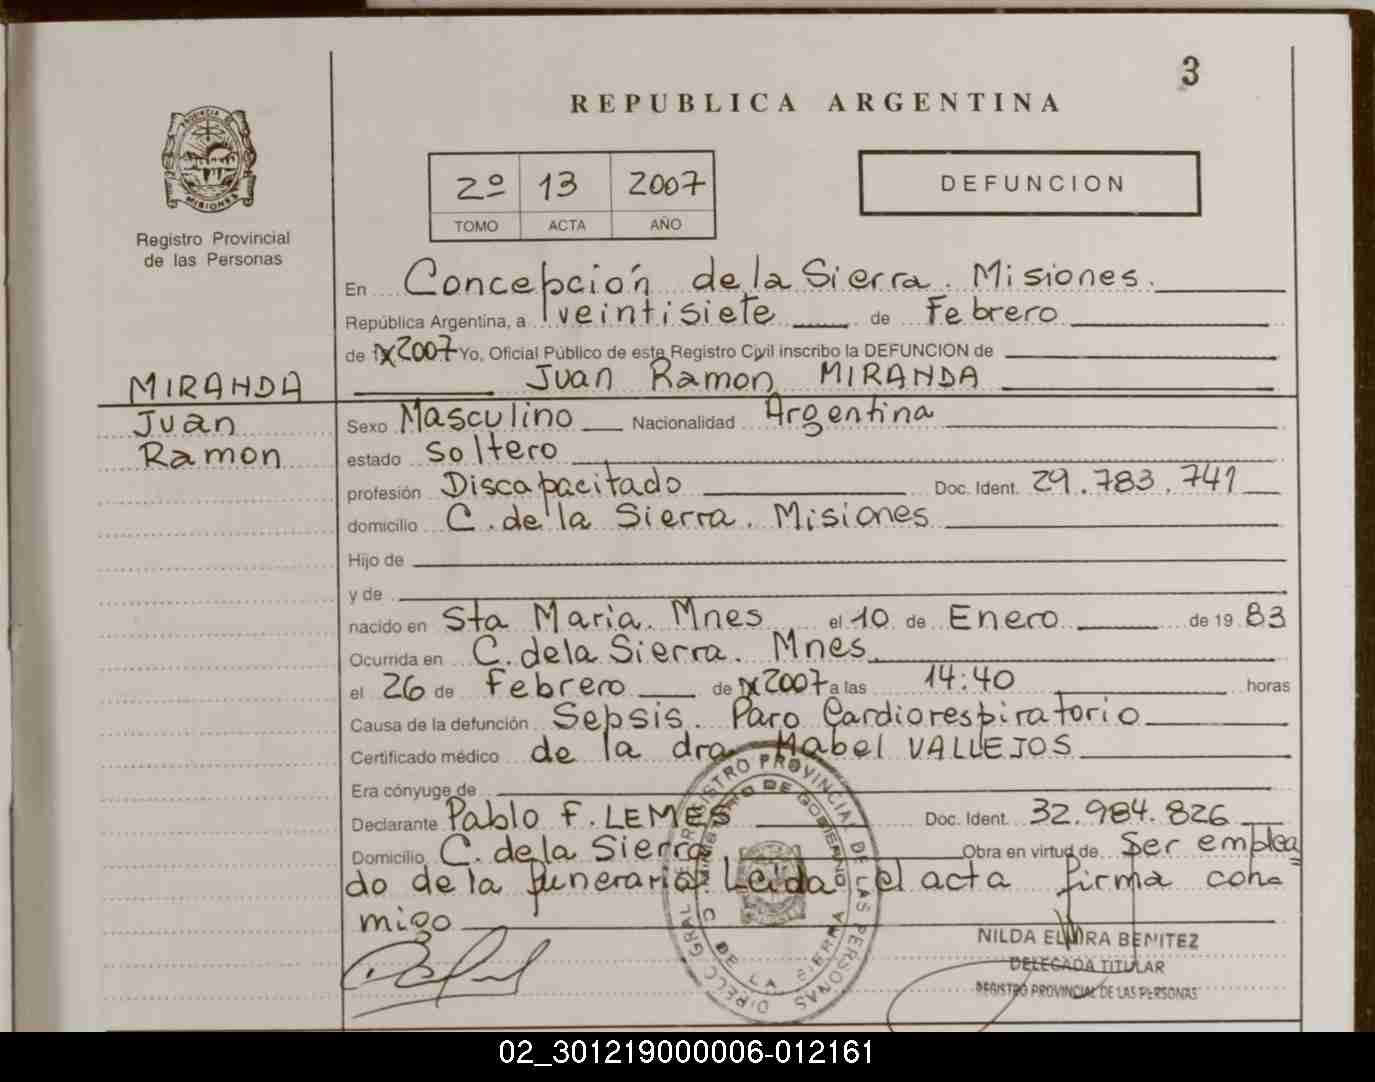 3
REPUBLICA ARGENTINA
PROVINCIA D
MISIONES
Registro Provincial
de las Personas
2º 13 2007
TOMO ACTA AÑO
DEFUNCION
En Concepción de la Sierra. Misiones.
República Argentina, a veintisiete de Febrero
de 2007 Yo, Oficial Público de este Registro Civil inscribo la DEFUNCION de
Juan Ramon MIRANDA
MIRANDA
Juan
Ramon
Sexo Masculino Nacionalidad Argentina
estado Soltero
profesión Discapacitado Doc. Ident. 29.783.741
domicilio C. de la Sierra. Misiones
Hijo de
y de
nacido en Sta Maria. Mnes el 10 de Enero de 19 83
Ocurrida en C. de la Sierra. Mnes
el 26 de Febrero de 2007 a las 14:40 horas
Causa de la defunción Sepsis. Paro Cardiorespiratorio
Certificado médico de la dra Mabel VALLEJOS
Era cónyuge de
Declarante Pablo F. LEMES Doc. Ident. 32.984.826
Domicilio C. de la Sierra Obra en virtud de Ser emplea
do de la funeraria Leida el acta firma con
migo
DIREC. GRAL. DE REGISTRO PROVINCIAL DE LAS PERSONAS
MINISTERIO DE GOBIERNO
C DE LA SIERRA
NILDA ELVIRA BENITEZ
DELEGADA TITULAR
REGISTRO PROVINCIAL DE LAS PERSONAS
02_301219000006-012161